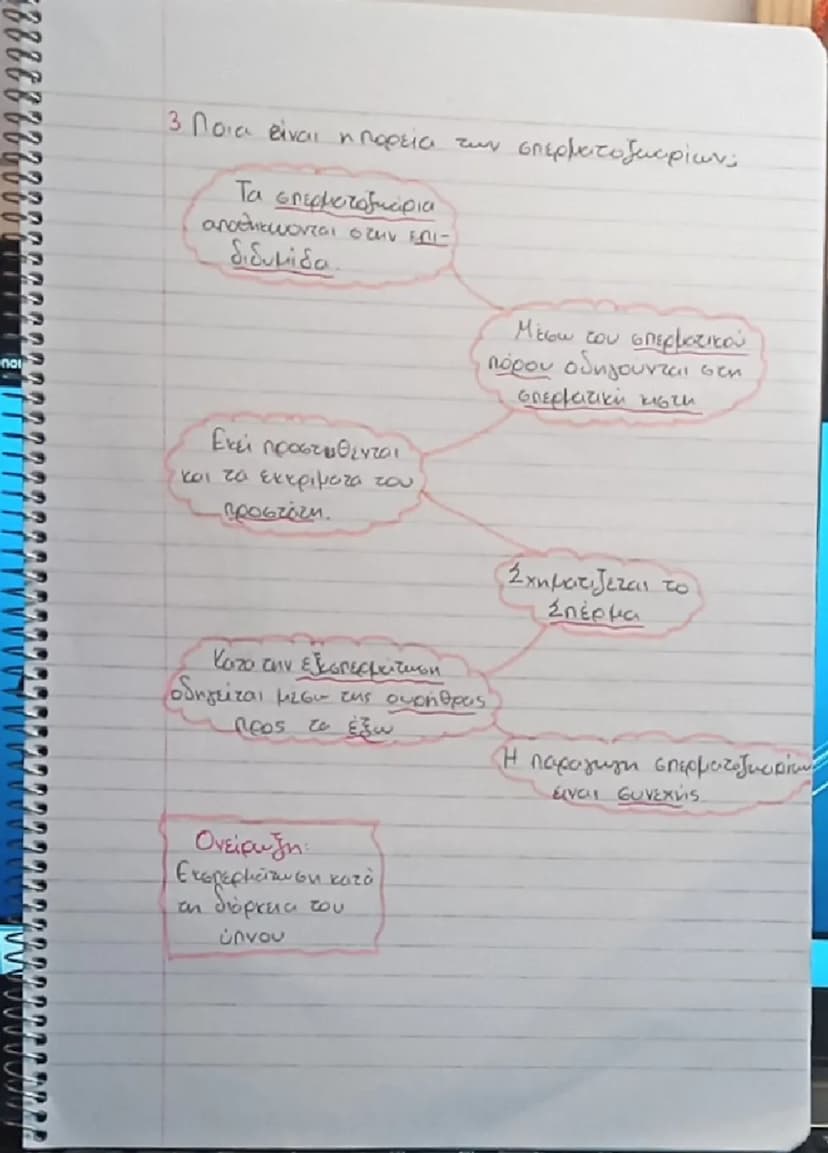 3 Ποια είναι η πορεία των σπερματοζωαρίων;
Τα σπερματοζωάρια
αποθηκεύονται στην επι-
διδυμίδα.
Μέσω του σπερματικού
πόρου οδηγούνται στη
σπερματική κύστη
Εκεί προστιθενται
και τα εκκριματα του
προστάτη.
Σχηματίζεται το
Σπέρμα
Κατα την εκσπερμάτωση
οδηγείται μέσω της ουρήθρας
προς τα έξω
Η παραγωγη σπερματοζωαρίων
είναι συνεχής
Ονείρωξη:
Εκσπερμάτωση κατά
τη διάρκεια του
ύπνου